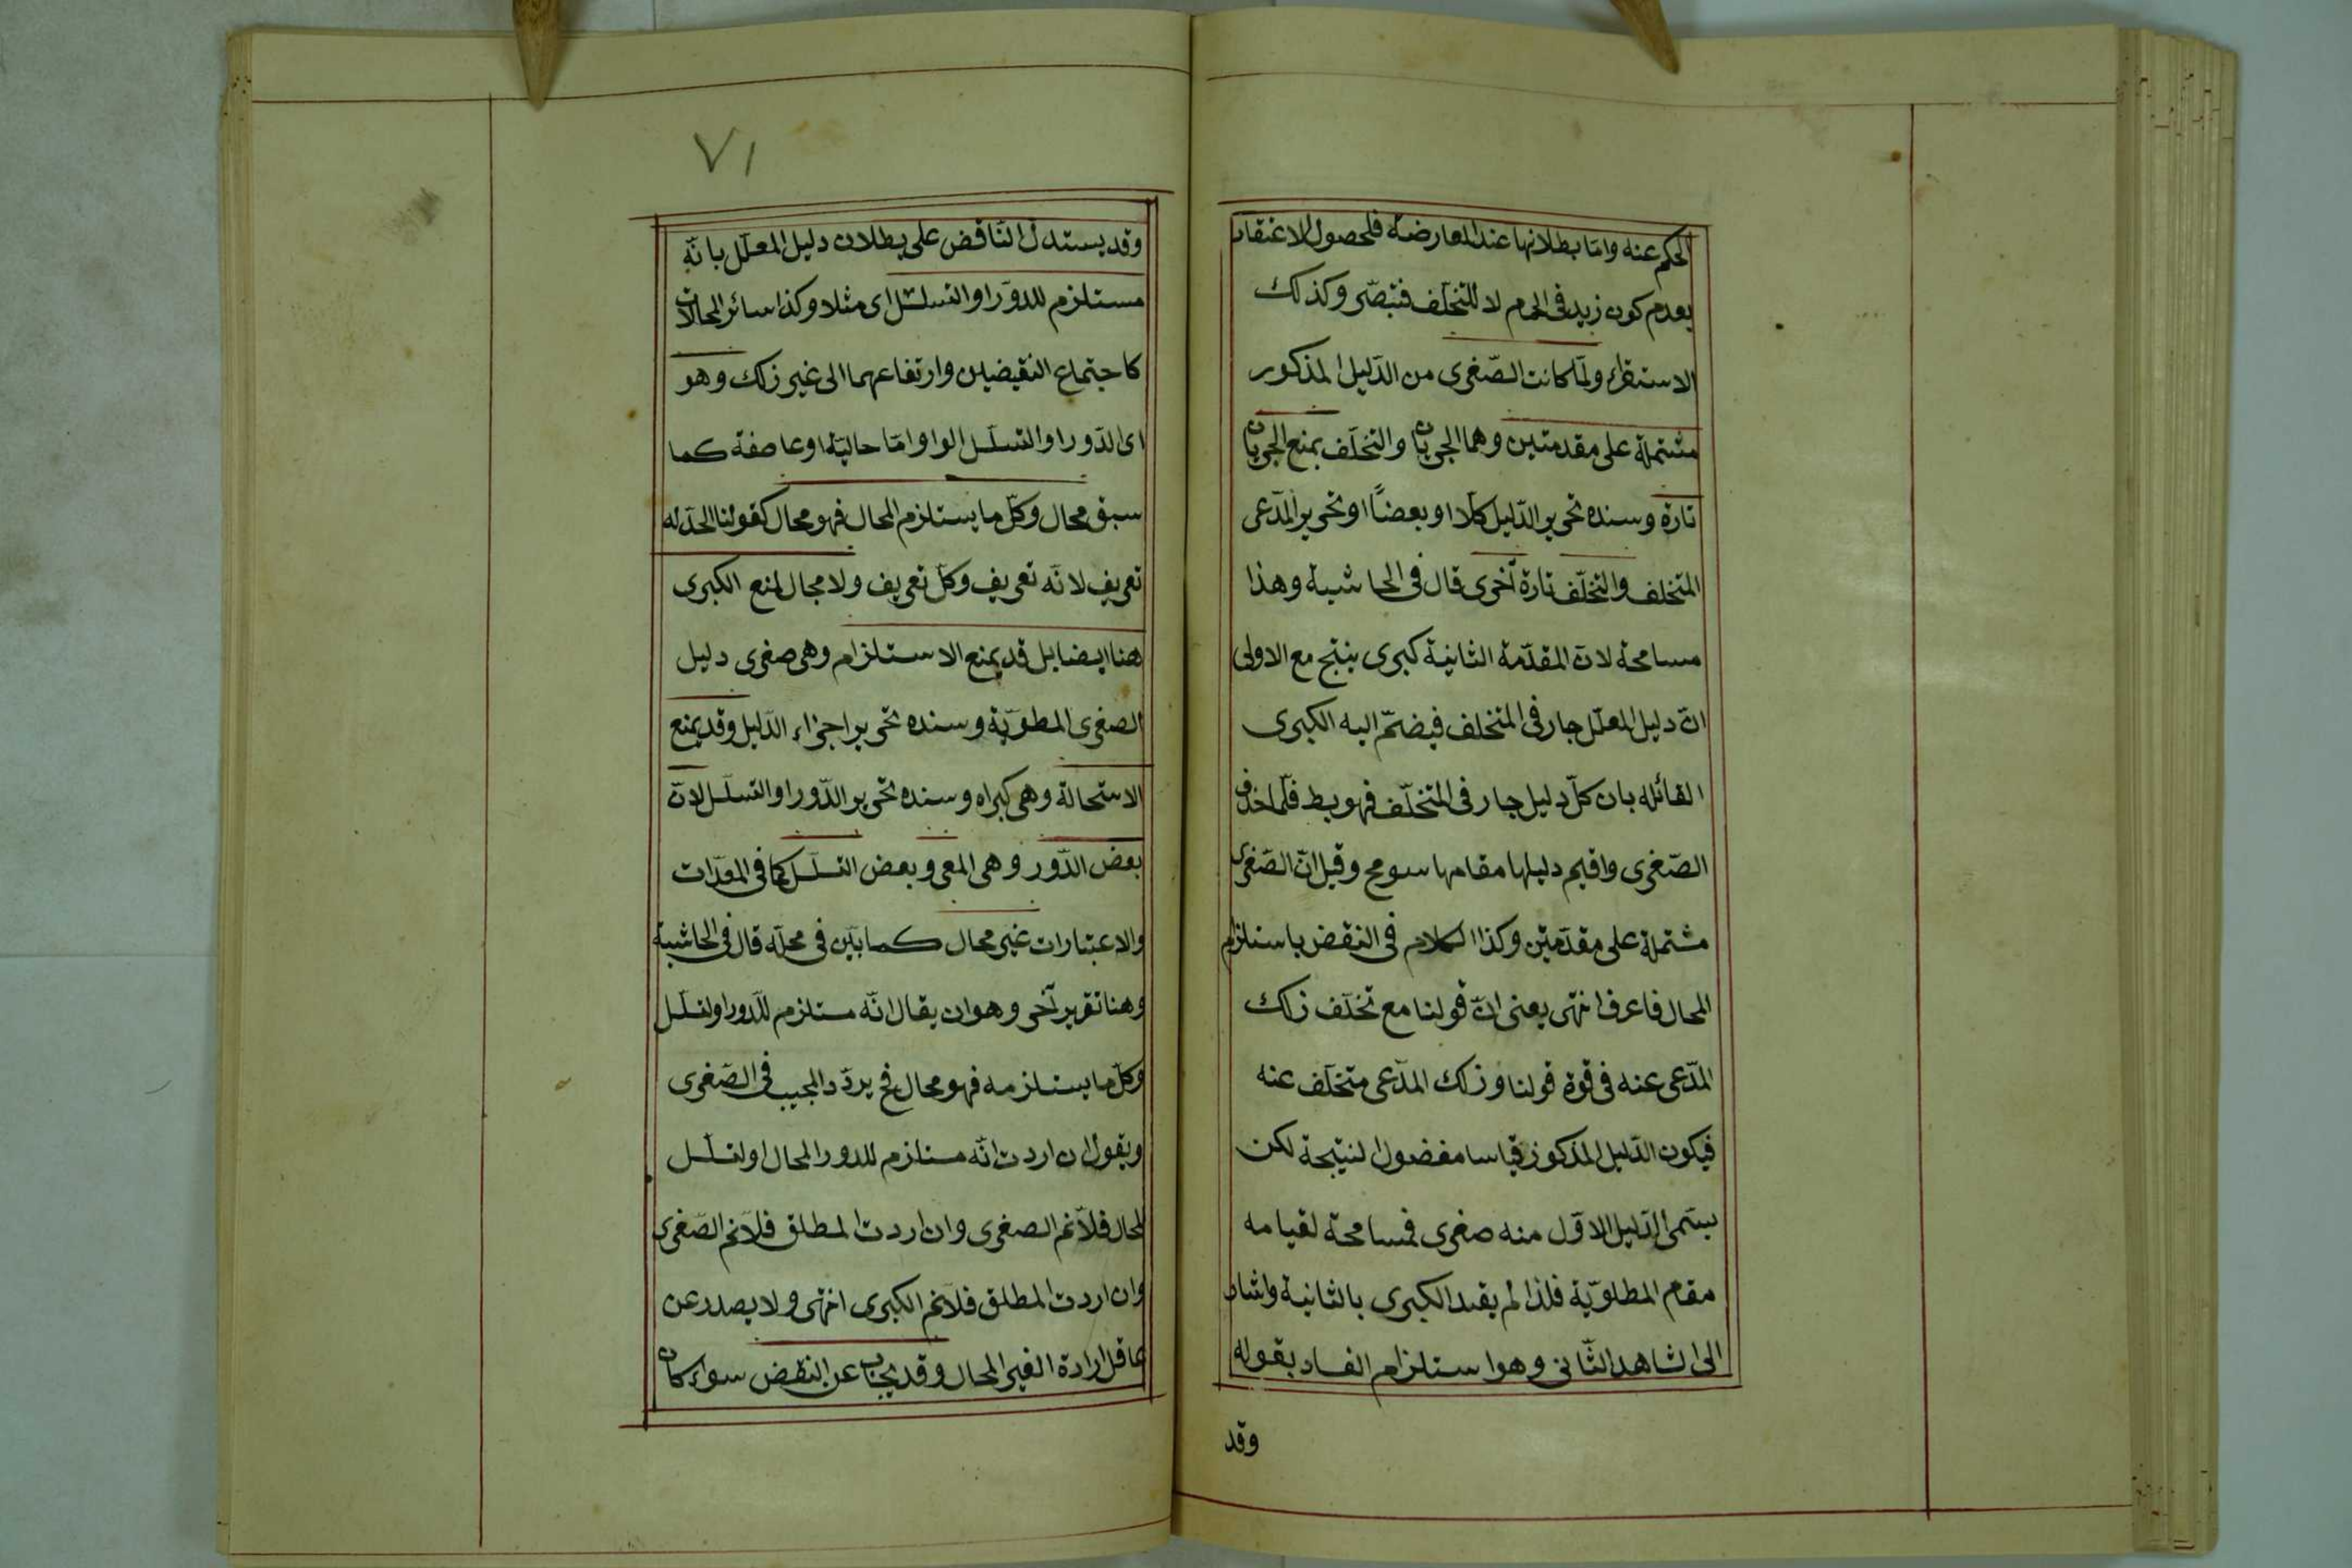 الحكم عنه واما بطلانها عند المعارضة فلحصول الاعتقاد
بعدم كون زيد فى لا للتخلّف فتبصّر وكذلك
الاستقراء ولمّا كانت الصّغرى من الدّليل المذكور
مشتملة على مقدمتين وهما الجريان والتخلّف يمنع الجريان
تارة وسنده تحرير الدّليل كلّا او بعضاً او تحرير المدّعى
المتخلف والتخلّف تارة أخرى قال فى الحاشية وهذا
مسامحة لانّ المقدّمة الثانية كبرى ينتج مع الاولى
انّ دليل المعلّل جار فى المتخلف فيضمّ اليه الكبرى
القائله بان كلّ دليل جار فى المتخلّف فهو بط فلمّا حذف
الصّغرى واقيم دليلها مقامها سومح وقيل انّ الصّغرى
مشتملة على مقدّمتين وكذا الكلام فى النقض باستلزام
المحال فاعرف انتهى يعنى انّ قولنا مع تخلّف ذلك
المدّعى عنه فى قوة قولنا وذلك المدّعى متخلّف عنه
فيكون الدّليل المذكور قياسا مفصول النتيجة لكن
يسمّى الدّليل الاوّل منه صغرى فمسامحة لقيامه
مقام المطلويّة فلذا لم يقيد الكبرى بالثانية واشار
الى الشاهد الثّانى وهو استلزام الفساد بقوله
وقد
٧١
وقد يستدلّ النّاقض على بطلان دليل المعلّل بانّه
مستلزم للدّور او التسلسل اى مثلا وكذا سائر المحالات
كاجتماع النقيضين وارتفاعهما الى غير ذلك وهو
اى الدّور او التسلسل الواو امّا حاليّة او عاطفة كما
سبق محال وكلّ ما يستلزم المحال فهو محال كقولنا الحدّ له
تعريف لانّه تعريف وكلّ تعريف ولا مجال لمنع الكبرى
هنا ايضا بل قد يمنع الاستلزام وهى صغرى دليل
الصغرى المطويّة وسنده تحرير اجزاء الدّليل وقد يمنع
الاستحالة وهى كبراه وسنده تحرير الدّور او التسلسل لانّ
بعض الدّور وهى المعى وبعض التسلسل كما فى المعدّات
والاعتبارات غير محال كما بيّن فى محلّه قال فى الحاشية
وهنا تقرير آخر وهو ان يقال انّه مستلزم للدّور او لتسلسل
وكلّ ما يستلزمه فهو محال فح يردّد المجيب فى الصّغرى
ويقول ان اردت انّه مستلزم للدور المحال او لتسلسل
المحال فلانّم الصغرى وان اردت المطلق فلانّم الصّغرى
وان اردت المطلق فلانّم الكبرى انتهى ولا يصدر عن
عاقل ارادة الغير المحال وقد يجاب عن النقض سواء كان